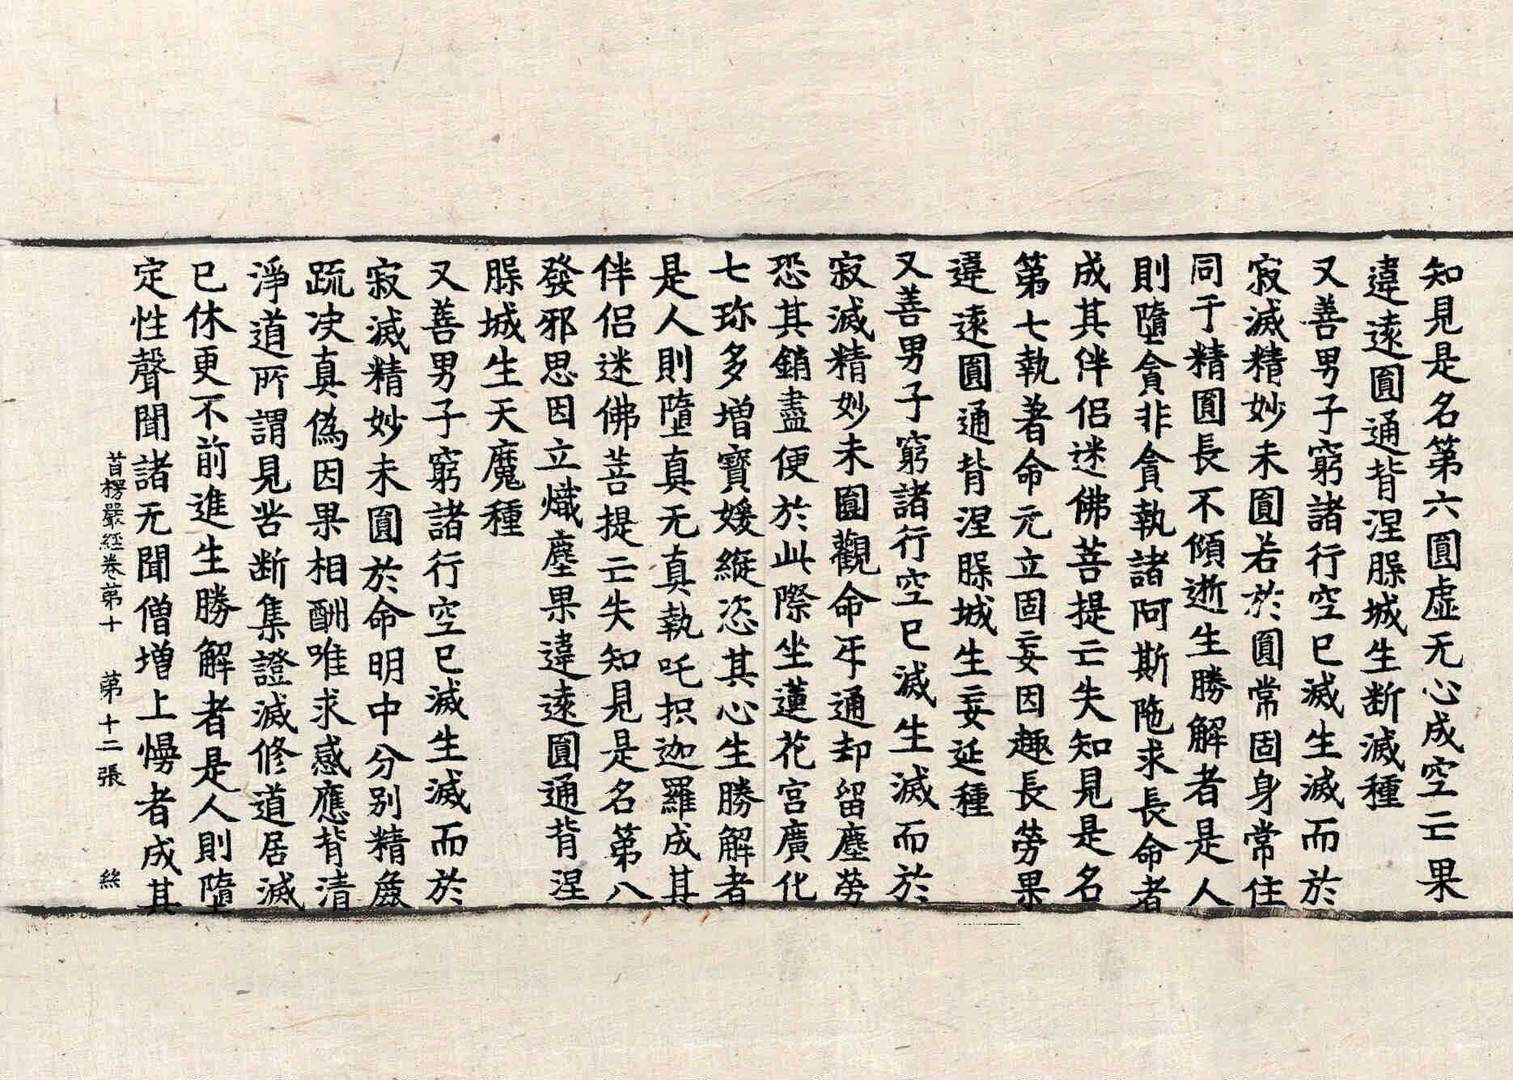 知見是名第六圓虛无心成空亡果
違遠圓通背涅槃城生断滅種
又善男子窮諸行空已滅生滅而於
寂滅精妙未圓若於圓常固身常住
同于精圓長不傾逝生勝解者是人
則墮貪非貪執諸阿斯陁求長命者
成其伴侶迷佛菩提亡失知見是名
第七執著命元立固妄因趣長勞果
違遠圓通背涅槃城生妄延種
又善男子窮諸行空已滅生滅而於
寂滅精妙未圓觀命互通却留塵勞
恐其銷盡便於此際坐蓮花宮廣化
七珎多增寶媛縱恣其心生勝解者
是人則墮真无真執吒抧迦羅成其
伴侶迷佛菩提亡失知見是名第八
發邪思因立熾塵果違遠圓通背涅
槃城生天魔種
又善男子窮諸行空已滅生滅而於
寂滅精妙未圓於命明中分別精麁
䟽决真偽因果相酬唯求感應背清
淨道所謂見苦断集證滅修道居滅
已休更不前進生勝解者是人則墮
定性聲聞諸无聞僧增上慢者成其
首楞嚴經卷第十 第十二張 絲